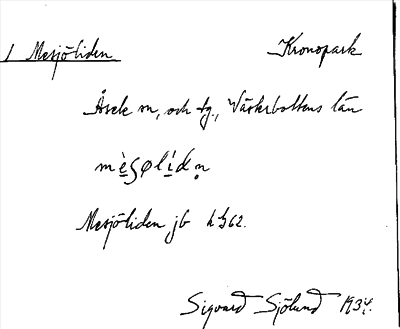 1 Mesjöliden Kronopark
Åsele sn, och tg., Västerbottens län
Mesjöliden jb
Sigvard Sjölund 1934.